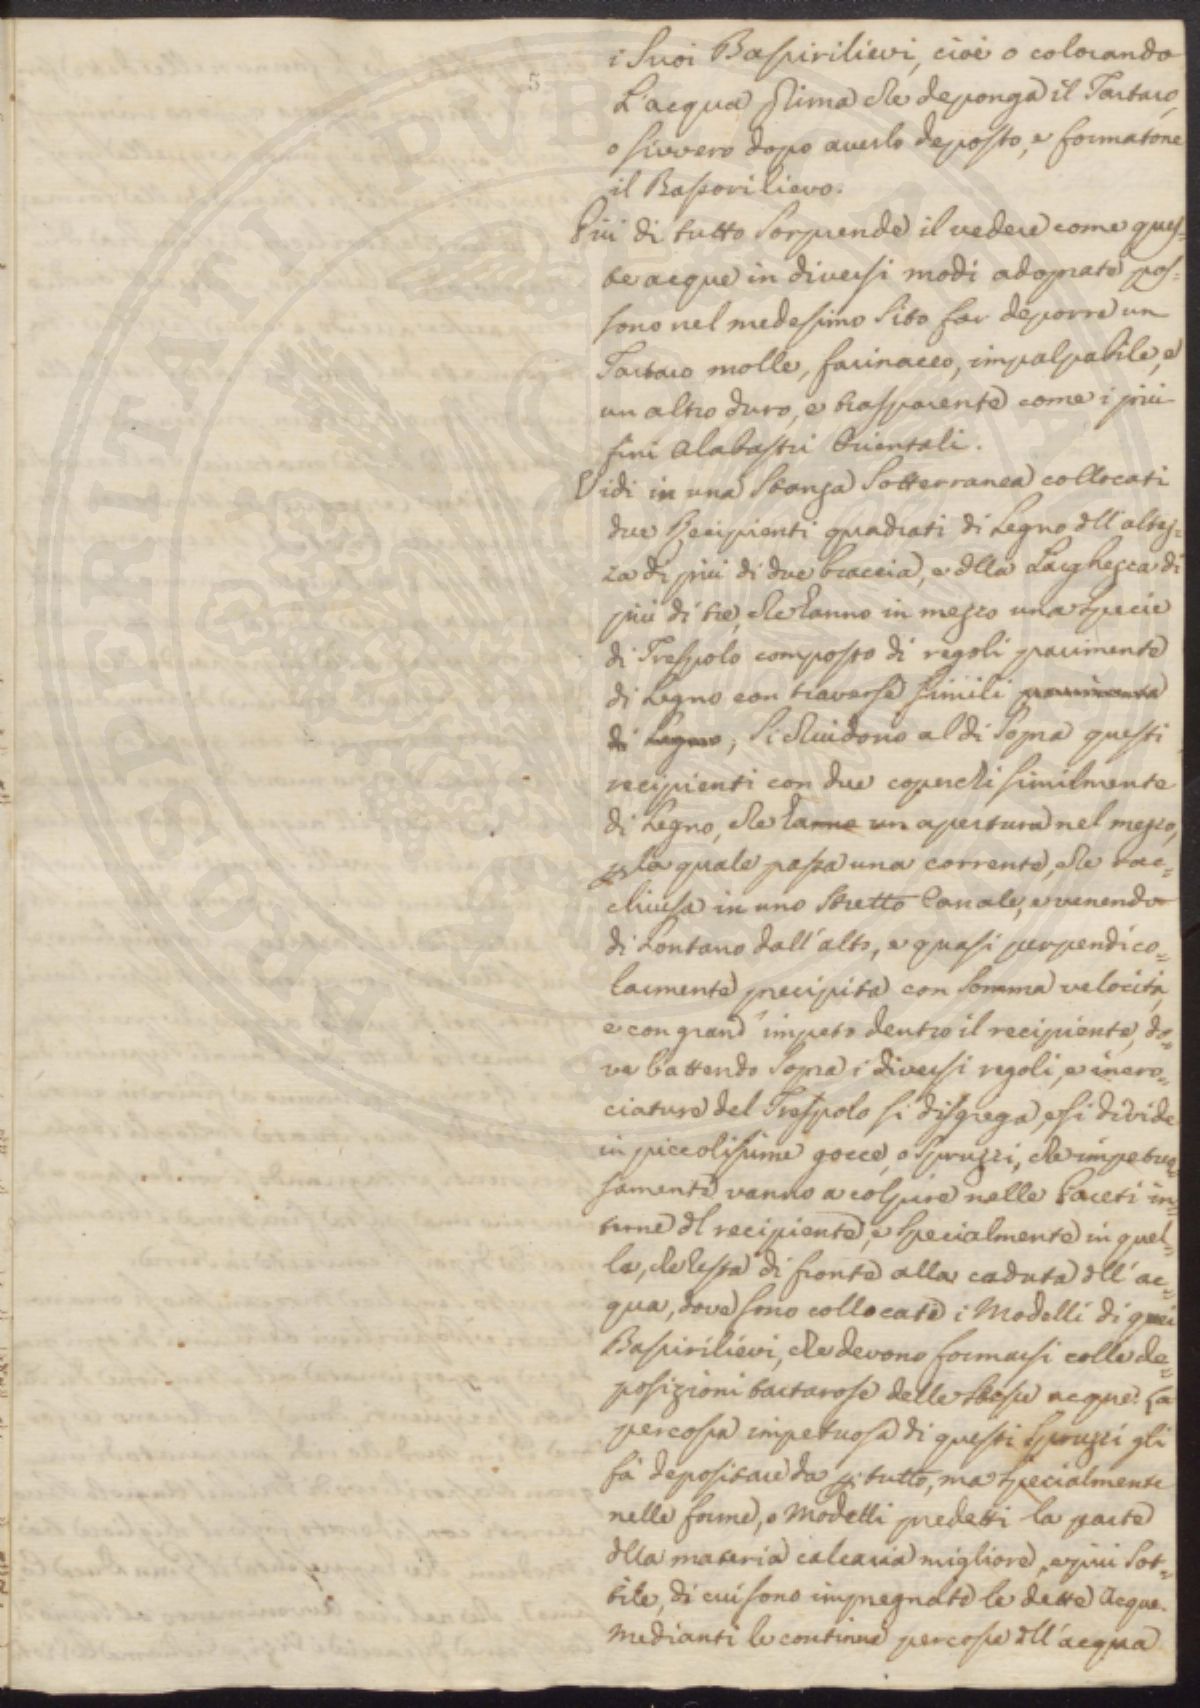 5
i Suoi Bassirilievi, cioè o colorando
L'acqua prima che deponga il Tartaro,
o sivvero dopo averlo deposto, e formatone
il Bassorilievo.
Più di tutto Sorprende il vedere come ques-
te acque in diversi modi adoprate pos-
sono nel medesimo Sito far deporre un
Tartaro molle, farinaceo, impalpabile, e
un altro duro, e trasparente come i più
fini Alabastri Orientali.
Vidi in una Stanza Sotterranea collocati
due Recipienti quadrati di Legno dll'altez-
za di più di due braccia, e dlla Larghezza di
più di tre, che hanno in mezzo una specie
di Trespolo composto di regoli parimente
di Legno con traverse simili parimente
di Legno, Si chiudono al di Sopra questi
recipienti con due coperchi similmente
di Legno, che hanno un apertura nel mezzo,
p la quale passa una corrente, che rac-
chiusa in uno Stretto Canale, e venendo
di Lontano dall'alto, e quasi perpendico-
larmente precipita con Somma velocità,
e con grand'impeto dentro il recipiente, do-
ve battendo Sopra i diversi regoli, e incro-
ciature del Trespolo si disgrega, e si divide
in piccolissime gocce, o Spruzzi, che impetuo-
samente vanno a colpire nelle Pareti in-
terne dl recipiente, e specialmente in quel-
la, che resta di fronte alla caduta dll'ac-
qua, dove sono collocate i Modelli di quei
Bassirilievi, che devono formarsi colle de-
posizioni tartarose delle stesse acque. La
percossa impetuosa di questi Spruzzi gli
fà depositare da p. tutto, ma specialmente
nelle forme, o Modelli predetti la parte
dlla materia calcaria migliore, e più Sot-
tile, di cui sono impregnate le dette Acque.
Medianti le continue percosse dll'acqua